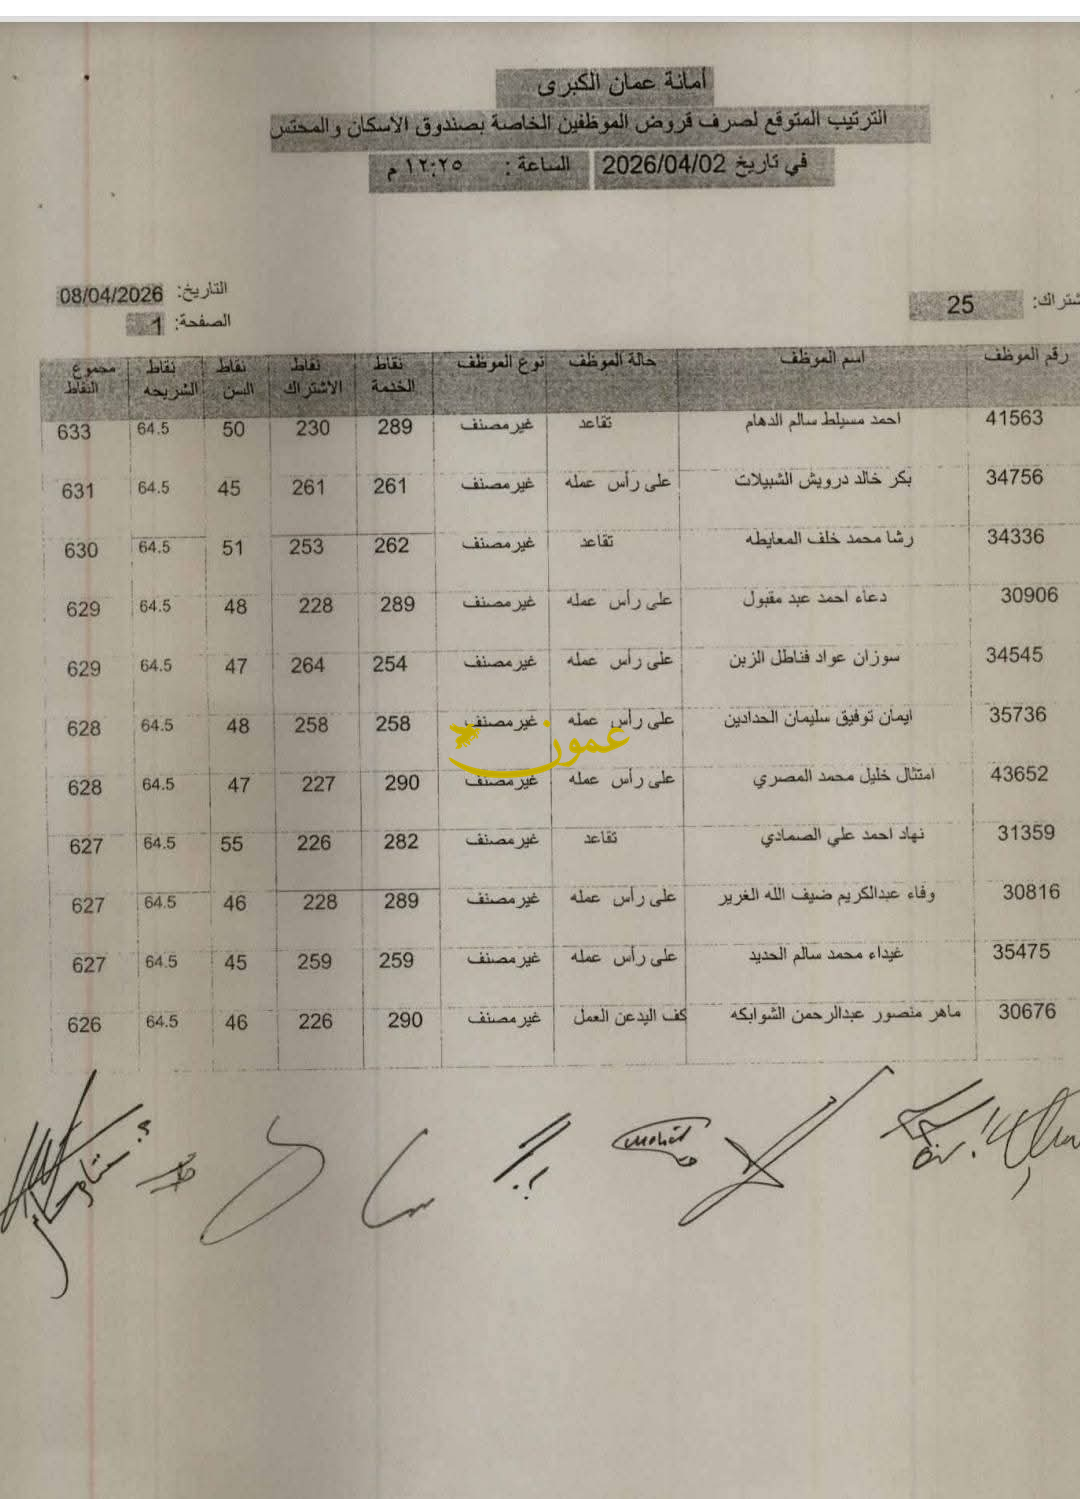 أمانة عمان الكبرى
الترتيب المتوقع لصرف قروض الموظفين الخاصة بصندوق الاسكان والمحتس
في تاريخ 2026/04/02 الساعة : ١٢:٢٥ م
التاريخ: 08/04/2026
شتراك: 25
الصفحة: 1
رقم الموظف اسم الموظف حالة الموظف نوع الموظف نقاط الخدمة نقاط الاشتراك نقاط السن نقاط الشريحه مجموع النقاط
41563 احمد مسيلط سالم الدهام تقاعد غير مصنف 289 230 50 64.5 633
34756 بكر خالد درويش الشبيلات على رأس عمله غير مصنف 261 261 45 64.5 631
34336 رشا محمد خلف المعايطه تقاعد غير مصنف 262 253 51 64.5 630
30906 دعاء احمد عبد مقبول على رأس عمله غير مصنف 289 228 48 64.5 629
34545 سوزان عواد فناطل الزبن على رأس عمله غير مصنف 254 264 47 64.5 629
35736 ايمان توفيق سليمان الحدادين على رأس عمله غير مصنف 258 258 48 64.5 628
عمون
43652 امتثال خليل محمد المصري على رأس عمله غير مصنف 290 227 47 64.5 628
31359 نهاد احمد علي الصمادي تقاعد غير مصنف 282 226 55 64.5 627
30816 وفاء عبدالكريم ضيف الله الغرير على رأس عمله غير مصنف 289 228 46 64.5 627
35475 غيداء محمد سالم الحديد على رأس عمله غير مصنف 259 259 45 64.5 627
30676 ماهر منصور عبدالرحمن الشوابكه كف اليدعن العمل غير مصنف 290 226 46 64.5 626